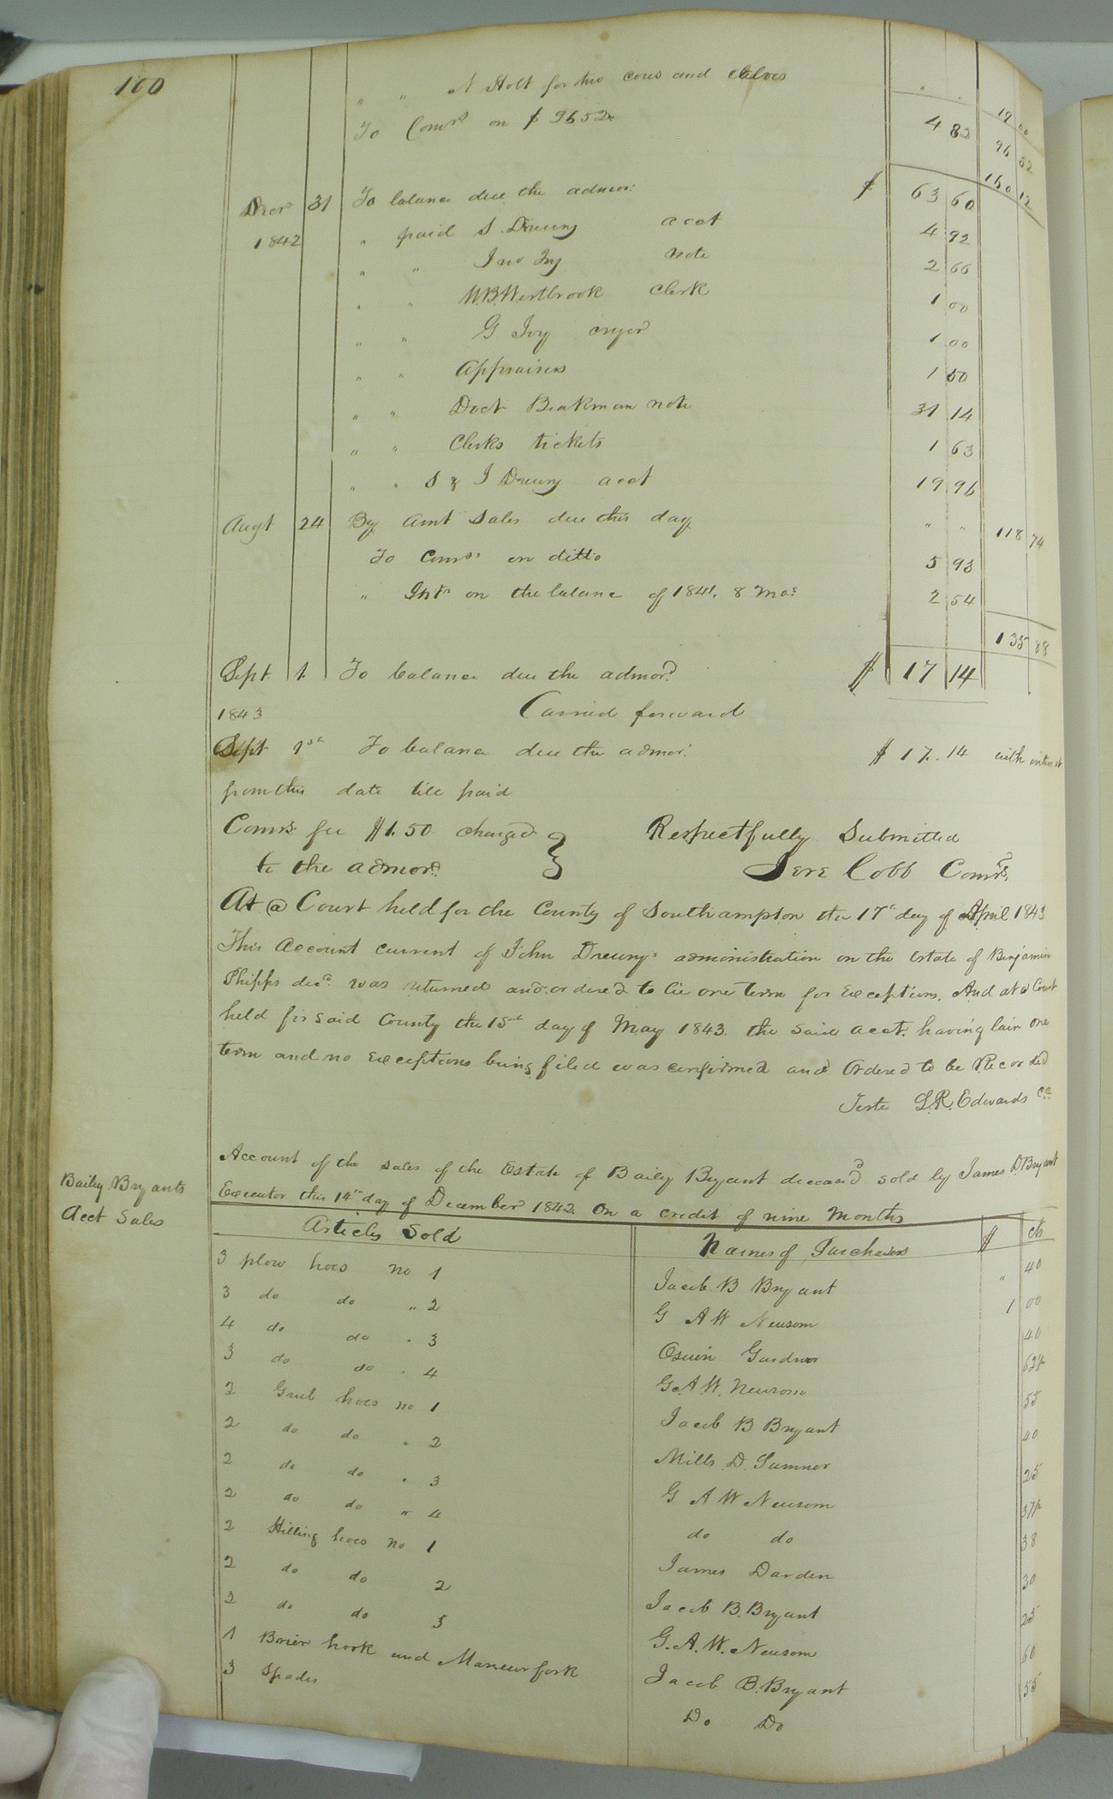 100
" " N Holt for two cows and calves " " 19 00
To Comrs on $ 9652 4 82 96 52
160 12
Decr 31 To balance due the admor: $ 63 60
1842 " paid S Drewry acct 4 92
" " Jno Ivy note 2 66
" " W.B. Westbrook Clerk 1 00
" " G Ivy cryer 1 00
" " Appraisers 1 50
" " Doct Beakman note 31 14
" " Clerks tickets 1 63
" " S & J Drewry acct 19 96
Augt 24 By amt Sales due this day " " 118 74
To Comrs on ditto 5 93
" Intr on the balance of 1841, 8 Mos 2 54
135 88
Sept 1. To balance due the admor. $ 17 14
1843 Carried forward
Sept 1st To balance due the admor: $ 17.14 with interest
from this date till paid
Comrs. fee $1.50 charged } Respectfully Submitted
to the admor. Jere Cobb Comr.
At a Court held for the County of Southampton the 17th day of April 1843
This Account current of John Drewrys administration on the Estate of Benjamin
Phipps decd. was returned and ordered to lie one term for exceptions. And at a Court
held for said County the 15th day of May 1843. the said acct. having lain one
term and no exceptions being filed was confirmed and Ordered to be Recorded
Teste L.R. Edwards Clk
Bailey Bryants
Acct Sales
Account of the sales of the Estate of Baily Bryant deceasd. sold by James D. Bryant
Executor this 14th day of December 1842 On a credit of nine Months
Articles Sold Names of Purchasers $ cts
3 plow hoes no 1 Jacob B Bryant " 40
3 do do " 2 G A W Newsom 1 00
4 do do " 3 Oswin Gardner 40
3 do do " 4 G.A.W. Newsom 62½
2 Grub hoes no 1 Jacob B Bryant 55
2 do do " 2 Mills D. Sumner 40
2 do do " 3 G A W Newsom 25
2 do do " 4 do do 37½
2 Hilling hoes no 1 James Darden 38
2 do do 2 Jacob B. Bryant 30
2 do do 3 G.A.W. Newsom 25
1 Brier hook and Maneur fork Jacob B. Bryant 60
3 Spades Do Do 55